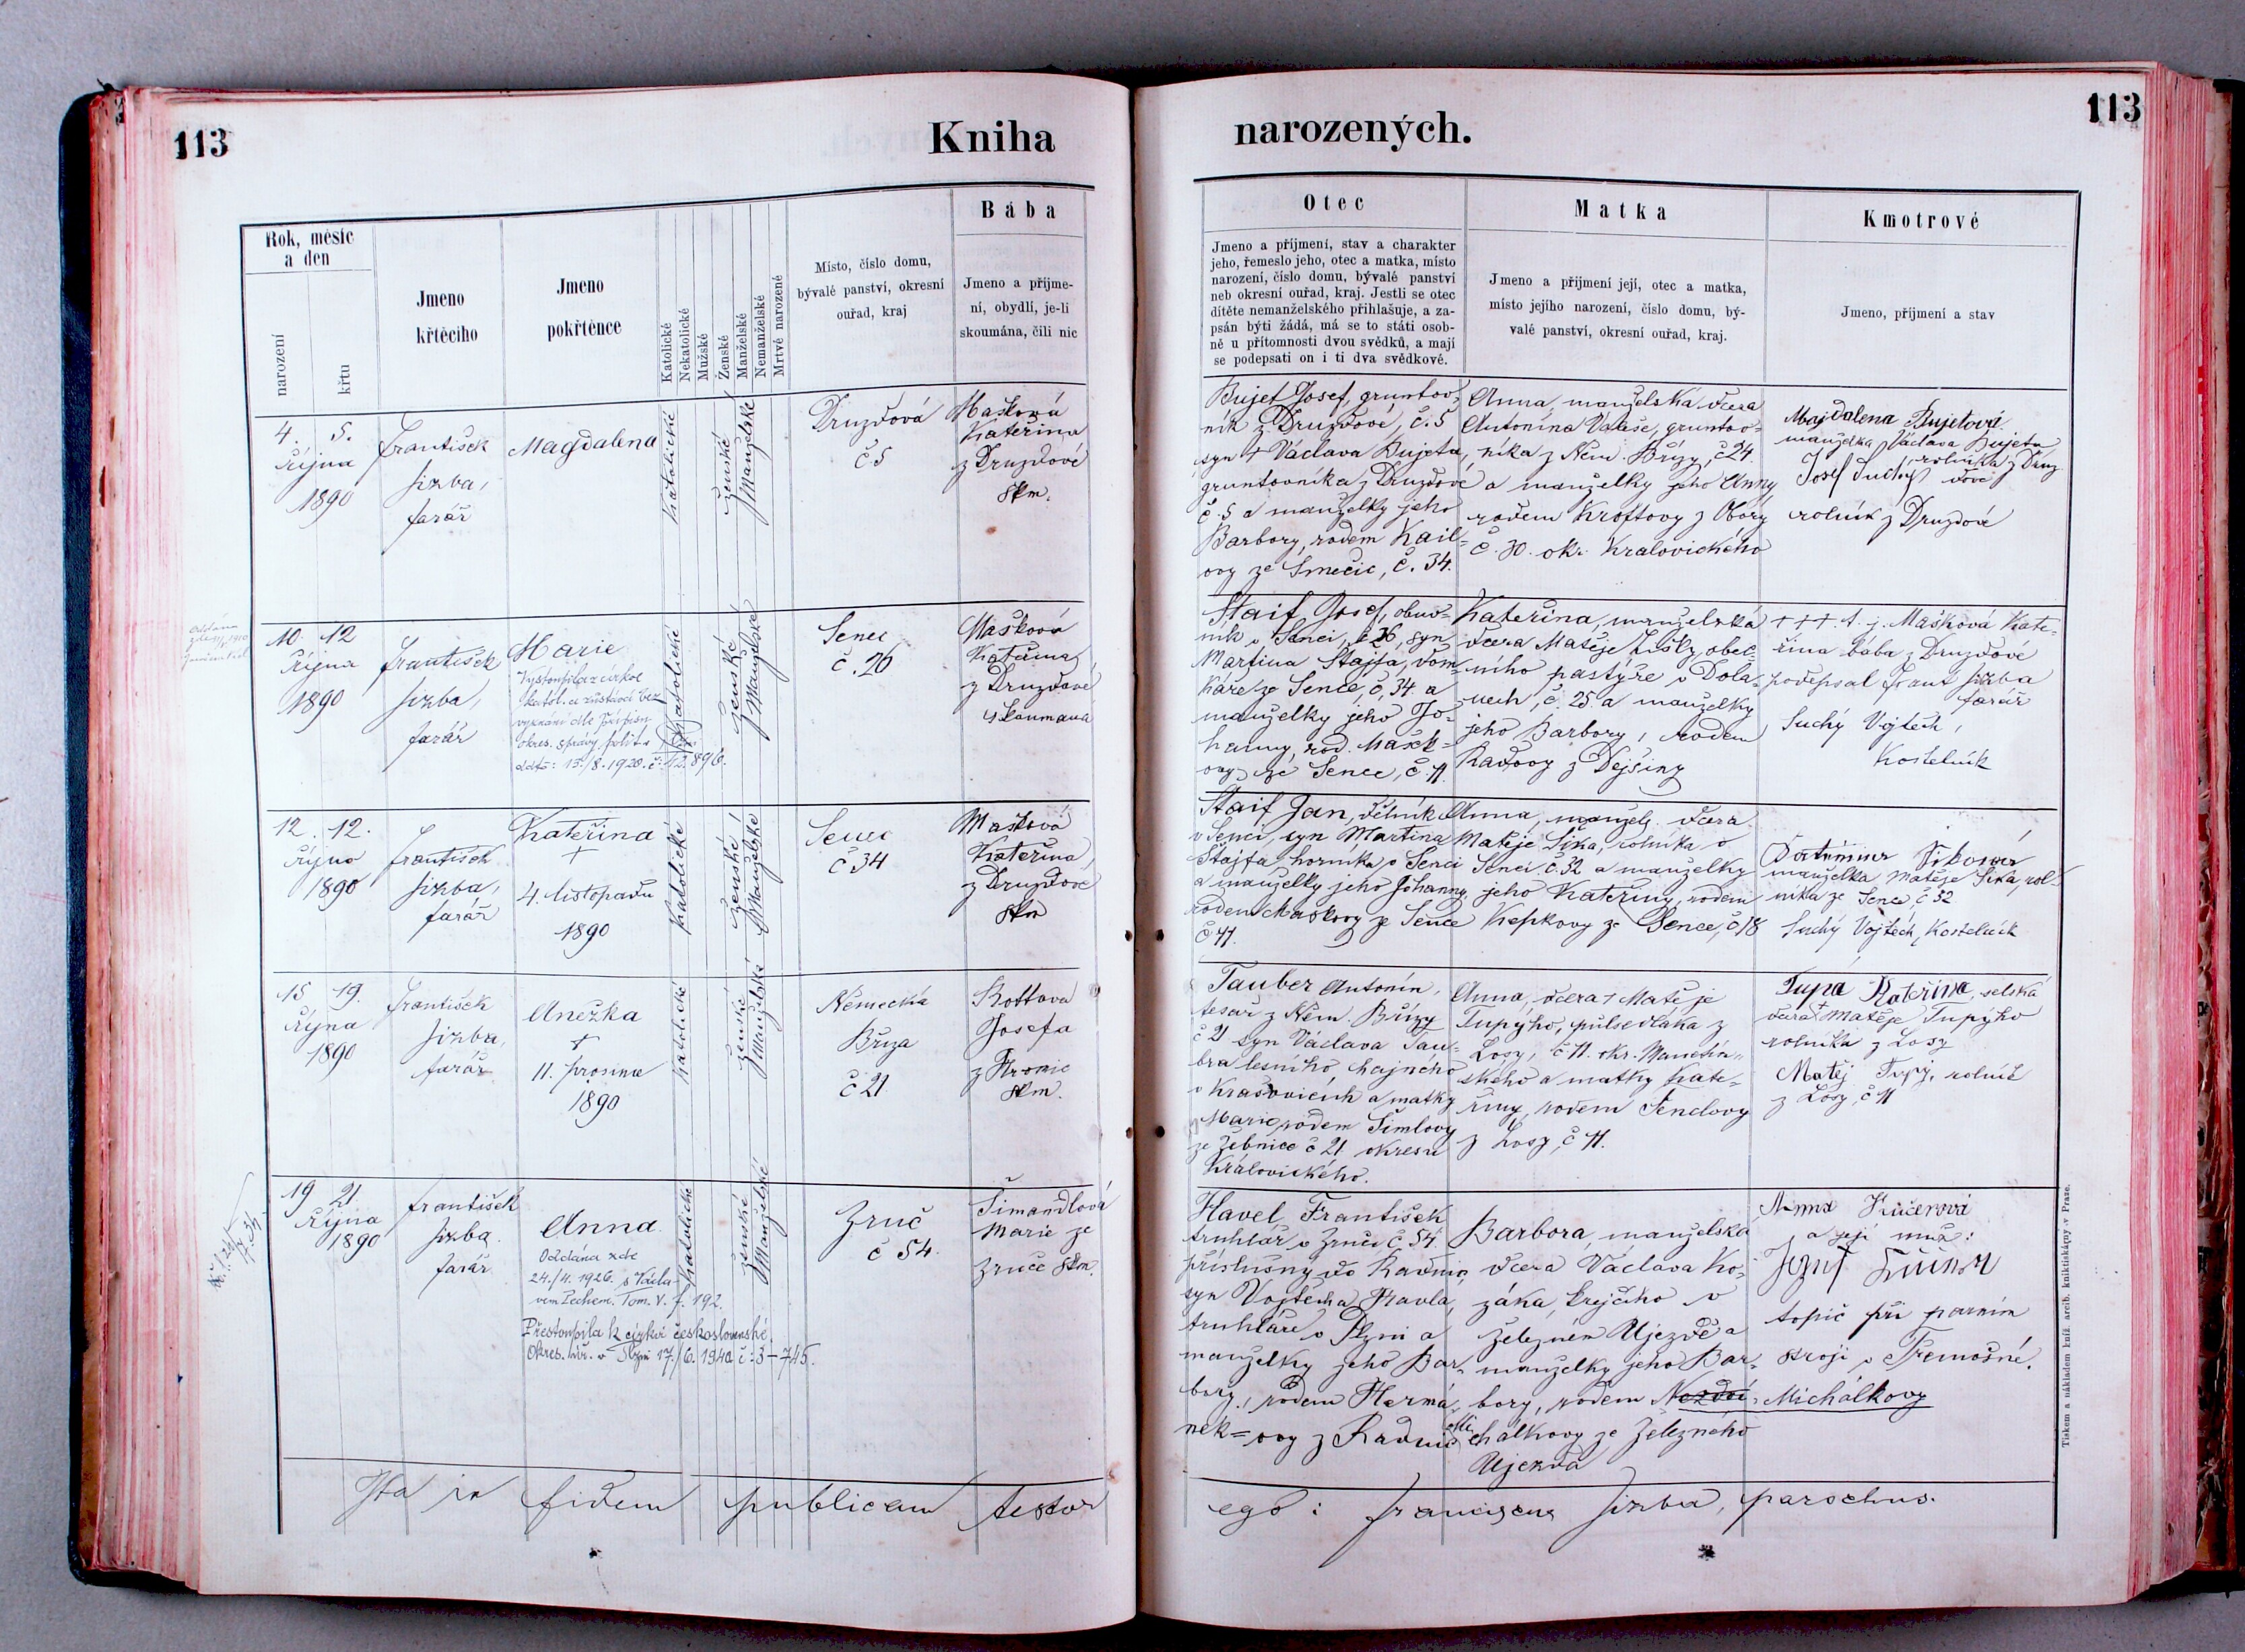 113
Kniha
narozených.
113
Rok, měsíc
a den
narození
křtu
Jmeno
křtěcího
Jmeno
pokřtěnce
Katolické
Nekatolické
Mužské
Ženské
Manželské
Nemanželské
Mrtvě narozené
Místo, číslo domu,
bývalé panství, okresní
ouřad, kraj
Bába
Jmeno a příjme-
ní, obydlí, je-li
skoumána, čili nic
Otec
Jmeno a příjmení, stav a charakter
jeho, řemeslo jeho, otec a matka, místo
narození, číslo domu, bývalé panství
neb okresní ouřad, kraj. Jestli se otec
dítěte nemanželského přihlašuje, a za-
psán býti žádá, má se to státi osob-
ně u přítomnosti dvou svědků, a mají
se podepsati on i ti dva svědkové.
Matka
Jmeno a příjmení její, otec a matka,
místo jejího narození, číslo domu, bý-
valé panství, okresní ouřad, kraj.
Kmotrové
Jmeno, příjmení a stav
4. 5.
října
1890
František
Sirba,
farář
Magdalena
katolické
ženské
manželské
Druzdová
č 5
Mašková
Kateřina
z Druzdové
skm.
Bujet Josef, gruntov-
ník z Druzdové, č. 5
syn † Václava Bujeta,
gruntovníka z Druzdové
č. 5 a manželky jeho
Barbory, rodem Kail-
ovy ze Smečic, č. 34.
Anna, manželská dcera
Antonína Valeše, gruntov-
níka z Něm. Břízy, č 24.
a manželky jeho Anny
rodem Krofftovy z Obory
č. 30. okr. Kralovického
Majdalena Bujetová
manželka Václava Bujeta
rolníka z Druz
dové
Josef Suchý
rolník z Druzdové
10. 12
října
1890
František
Sirba,
farář
Marie
Vystoupila z církve
katol. a zůstává bez
vyznání dle přípisu
okres. správy polit.
ddto: 13./8. 1920. č. 12.896.
katolické
ženské
manželské
Senec
č. 26
Mašková
Kateřina
z Druzdové
skoumaná
Staif Josef, obuv-
ník v Senci, č 26, syn
Martina Stajfa, dom-
káře ze Sence, č, 34 a
manželky jeho Jo-
hanny, rod. Mašk-
ovy ze Sence, č. 41.
Kateřina, manželská
dcera Matěje Lišky, obec-
ního pastýře v Dola-
nech, č. 25. a manželky
jeho Barbory, rodem
Radovy z Dejšiny
+++ t. j. Mašková Kate-
řina bába z Druzdové
podepsal Frant Sirba
farář
Suchý Vojtěch,
Kostelník
12. 12.
října
1890
František
Sirba,
farář
Kateřina
†
4. listopadu
1890
katolické
ženské
manželské
Senec
č 34
Mašková
Kateřina,
z Druzdové
skm
Staif Jan, dělník
v Senci, syn Martina
Štajfa, horníka v Senci
a manželky jeho Johanny,
rodem Maškovy ze Sence
č 41.
Anna, manžels. dcera
Matěje Šika, rolníka v
Senci č. 32 a manželky
jeho Kateřiny, rodem
Kepkovy ze Sence, č 18
manželka Matěje Šika rol-
níka ze Sence, č 32
Suchý Vojtěch, Kostelník
15 19.
října
1890
František
Sirba,
farář
Anežka
†
11. prosince
1890
katolické
ženské
manželské
Německá
Bříza
č 21
Kottova
Josefa
z Hromic
skm.
Tauber Antonín,
tesař z Něm. Břízy
č 21 syn Václava Tau-
bra lesního hajného
v Krašovicích a matky
Marie, rodem Šimlovy
ze Žebnice č 21. okresu
Královického.
Anna, dcera † Matěje
Tupýho, půlsedláka z
Losy, č 11. okr. Manetín-
ského a matky Kate-
řiny, rodem Šendlovy
z Losy, č 11.
Tupá Kateřina, selská
dcera † Matěje Tupýho
rolníka z Losy
Matěj Tupý, rolník
z Losy, č 11
19 21
října
1890
František
Sirba.
farář
Anna.
Oddána zde
24./4. 1926. s Václa-
vem Zechem. Tom. V. f. 192.
Přestoupila k církvi československé.
Okres. úř. v Plzni 17./6. 1940 č: 3-745.
katolické
ženské
manželské
Zruč
č 54.
Šimandlová
Marie ze
Zruče skm.
Havel František
truhlář v Zruči č 54.
příslušný do Radnic,
syn Vojtěcha Havla,
truhláře v Plzni a
manželky jeho Bar-
bory, rodem Heřmá-
nek=ovy z Radnic
Barbora, manželská
dcera Václava Ko-
záka, krejčího v
Železném Ujezdě a
manželky jeho Bar-
bory, rodem Michálkovy
Michálkovy ze Železného
Ujezda
Anna Kučerová
a její muž:
Josef Kučera
topič při parním
stroji v Třemošné.
Ita in fidem publicam testor
ego: Franciscus Sirba, parochus.
Tiskem a nákladem kníž. arcib. knihtiskárny v Praze.